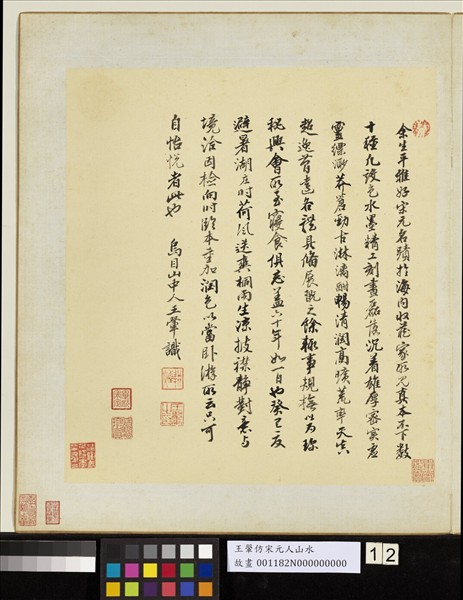 余生平雅好宋元名蹟於海內收藏家所見真本不下數
十種凡設色水墨精工刻畫磊落沉着雄厚密實虛
靈縹渺莽蒼勁古淋漓酣暢清潤高曠荒率天真
超逸奇遠各體具備展翫之餘極事規橅以為珍
秘興會所至寢食俱忘蓋六十年如一日也癸巳夏
避暑湖庄時荷風送爽桐雨生涼披襟靜對意與
境洽因檢向時臨本重加潤色以當臥游所云只可
自怡悅者此也 烏目山中人王翬識
王翬仿宋元人山水
故畫 001182N000000000
12